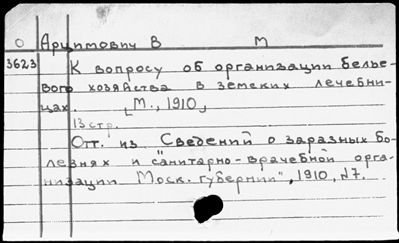 О Арцимович В М
3623 К вопросу об организации белье-
вого хозяйства в земских лечебни-
цах. [М., 1910]
13 стр.
Отт. из "Сведений о заразных бо-
лезнях и санитарно-врачебной орга-
низации Моск. губернии", 1910, №7.